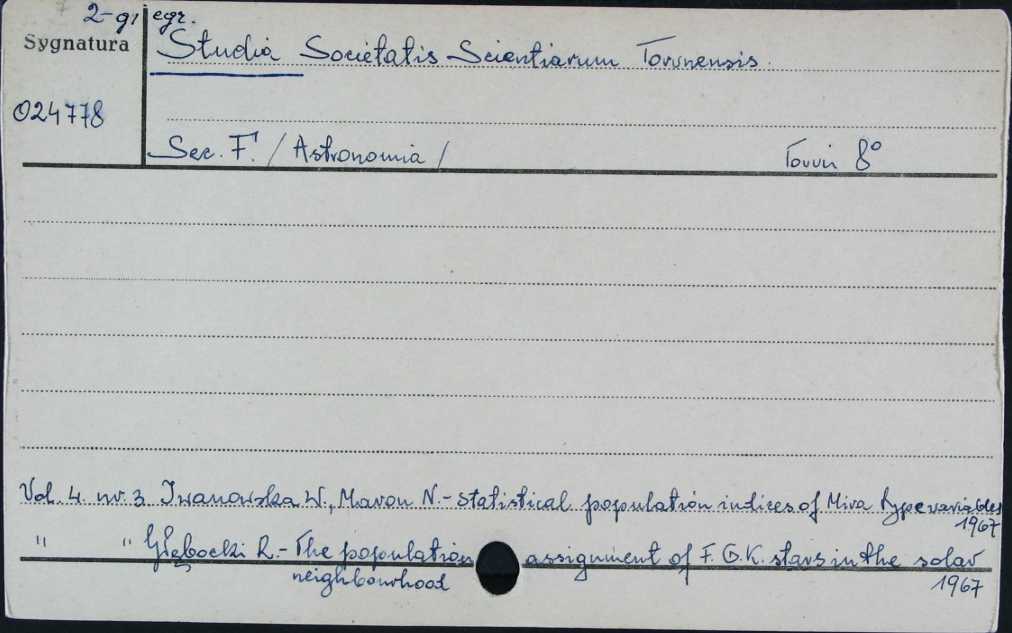 2-gi egz.
Sygnatura
Studia Societatis Scientiarum Torunensis.
024778
Sec. F. / Astronomia / Toruń 8°
Vol. 4. nr. 3 Iwanowska W., Maron N. - Statistical population indices of Mira type variables
1967
" " Głębocki R. - The population assignment of F. G. K. stars in the solar
neighbourhood 1967